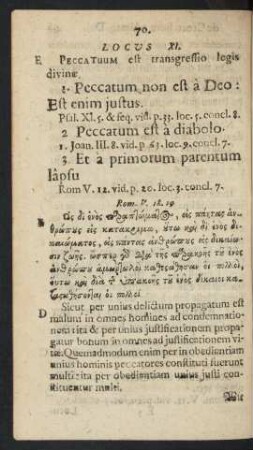 70.
LOCUS XI.
E PECCATUUM est transgressio legis
divinæ.
1. Peccatum non est à Deo:
Est enim justus.
Psal. XI. 5. & seq. vid. p. 33. loc. 5. concl. 8.
2 Peccatum est à diabolo.
1. Joan. III. 8. vid. p 63. loc. 9. concl. 7.
3. Et à primorum parentum
lapsu
Rom V. 12. vid. p. 20. loc. 3. concl. 7.
Rom. V. 18. 19
Ως δι ἑνὸς εἰς πάντας ἀν-
θρώπους εἰς κατάκριμα, ὅτω καὶ δι ἑνὸς δι-
καιώματος, εἰς πάντας ἀνθρώπους εἰς δικαίω-
σιν ζωῆς. ὥσπερ διὰ τῆς τοῦ ἑνὸς
ἀνθρώπου οἱ πολλοὶ,
ὅτω καὶ διὰ τοῦ ἑνὸς δίκαιοι κα-
οἱ πολλοί
D Sicut per unius delictum propagatum est
malum in omnes homines ad condemnatio-
nem ita & per unius justificationem propa-
gatur bonum in omnes ad justificationem vi-
tæ. Quemadmodum enim per inobedientiam
unius hominis peccatores constituti fuerunt
multi: ita per obedientiam unius justi con-
stituentur multi.